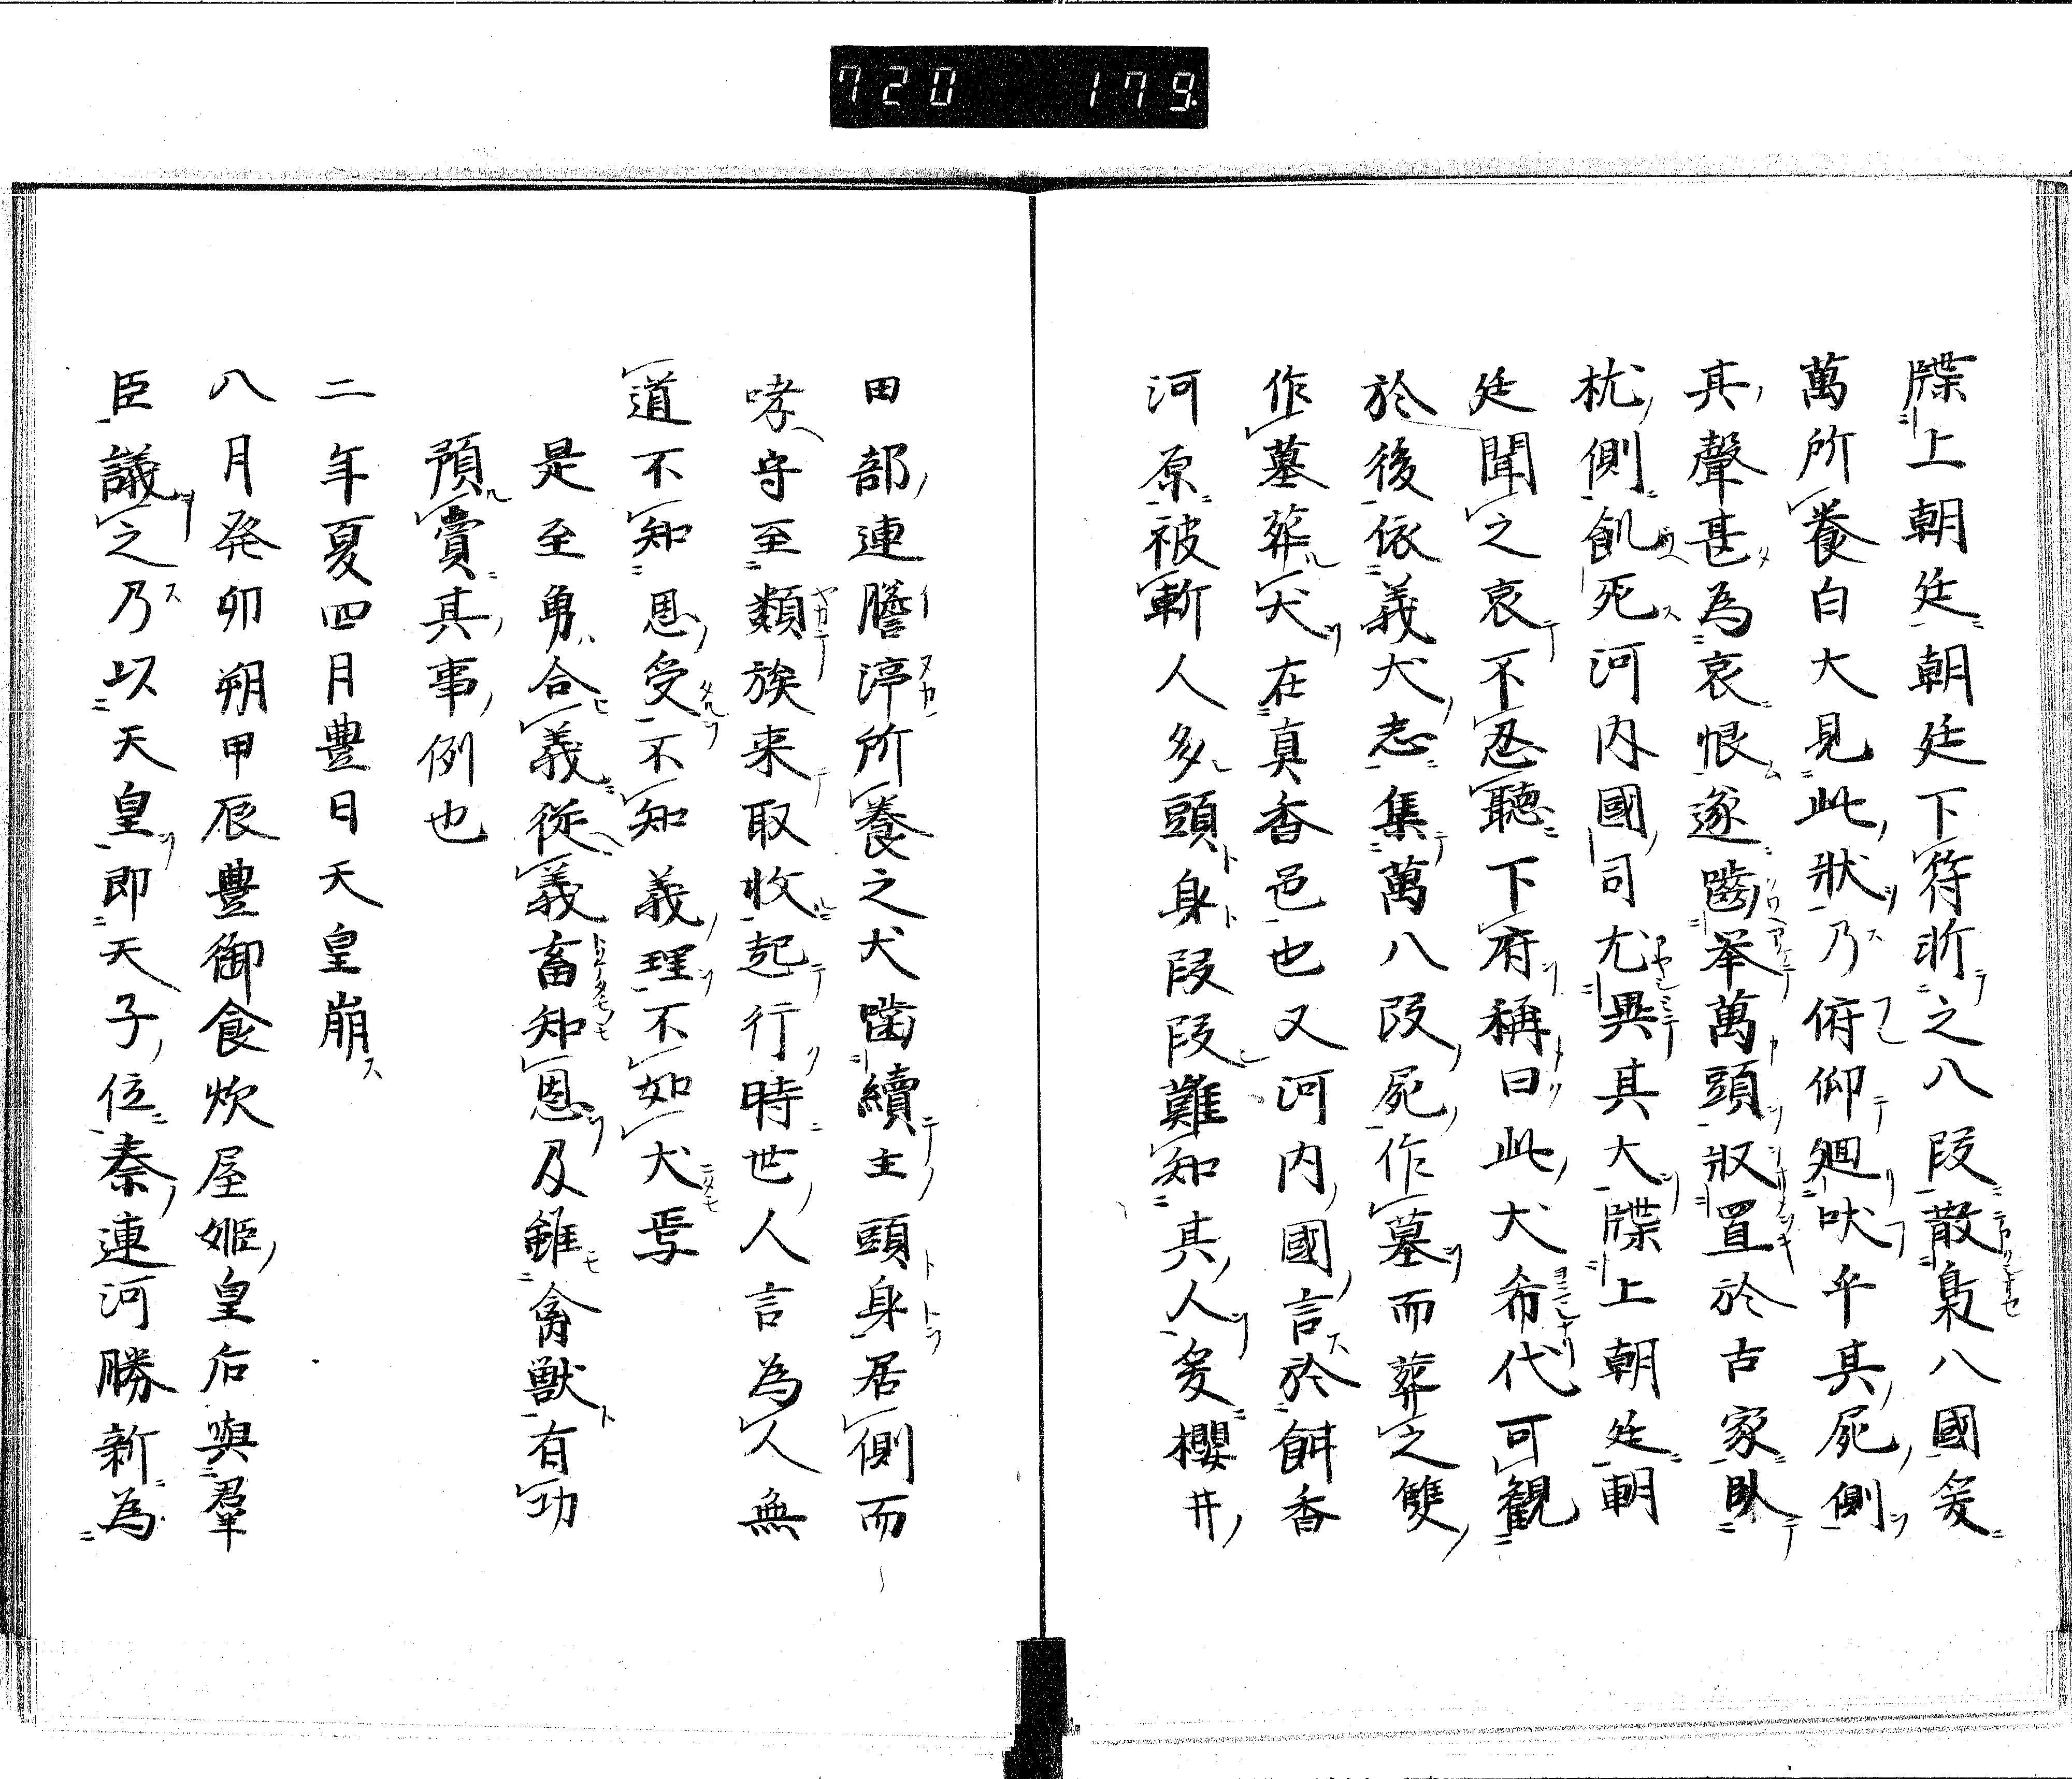 720 179
牒上朝廷朝廷下符斨之八段散梟八國爰
萬所養白犬見此狀乃俯仰廻吠乎其屍側
其聲甚為哀恨遂嚙举萬頭収置於古冢臥
枕側飢死河内國司尤異其犬牒上朝廷朝
廷聞之哀不忍聽下府稱曰此犬希代可観
於後依義犬志集萬八段屍作墓而葬之雙
作墓葬犬在真香邑也又河内國言於餌香
河原被斬人多頭身段段難知其人爰櫻井
田部連膽渟所養之犬嚙續主頭身居側而
哮守至類族来取收起行時世人言為人無
道不知恩受不知義理不如犬焉
是至勇合義従義畜知恩及雖禽獣有功
預賞其事例也
二年夏四月豊日天皇崩
八月癸卯朔甲辰豊御食炊屋姫皇后與羣
臣議之乃以天皇即天子位秦連河勝新為